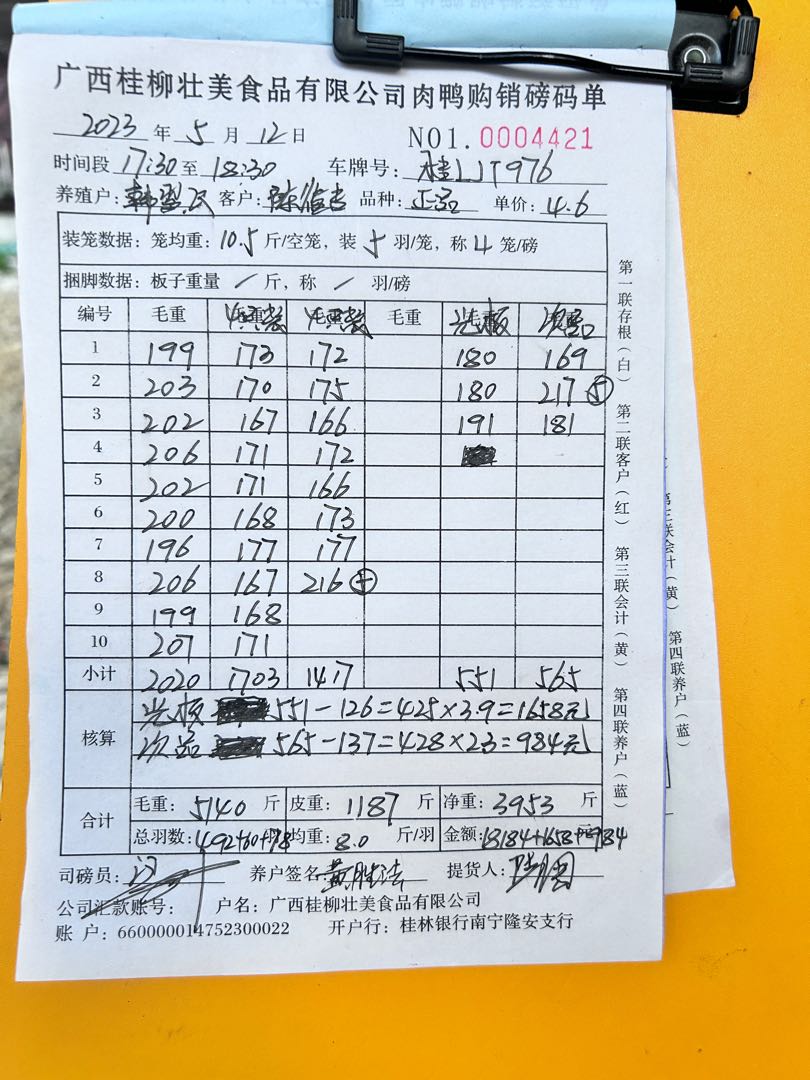 广西桂柳壮美食品有限公司肉鸭购销磅码单
2023 年 5 月 12 日 NO1. 0004421
时间段 17:30 至 18:30 车牌号:
养殖户: 客户: 品种: 正品 单价: 4.6
装笼数据: 笼均重: 10.5 斤/空笼, 装 5 羽/笼, 称 4 笼/磅
捆脚数据: 板子重量 / 斤, 称 / 羽/磅
编号 毛重 毛重 次品
1 199 173 172 180 169
2 203 170 175 180 217 ⑤
3 202 167 166 191 181
4 206 171 172
5 202 171 166
6 200 168 173
7 196 177 177
8 206 167 216
9 199 168
10 207 171
小计 2020 1703 1417 551 565
核算
551-126=425×3.9=1658元
次品 565-137=428×2.3=984元
合计
毛重: 5140 斤 皮重: 1187 斤 净重: 3953 斤
总羽数: 492+60+78 均重: 8.0 斤/羽 金额: 18184+1658+984
司磅员: 养户签名: 提货人:
公司汇款账号: 户名: 广西桂柳壮美食品有限公司
账 户: 660000014752300022 开户行: 桂林银行南宁隆安支行
第一联存根(白) 第二联客户(红) 第三联会计(黄) 第四联养户(蓝)
第三联会计(黄) 第四联养户(蓝)